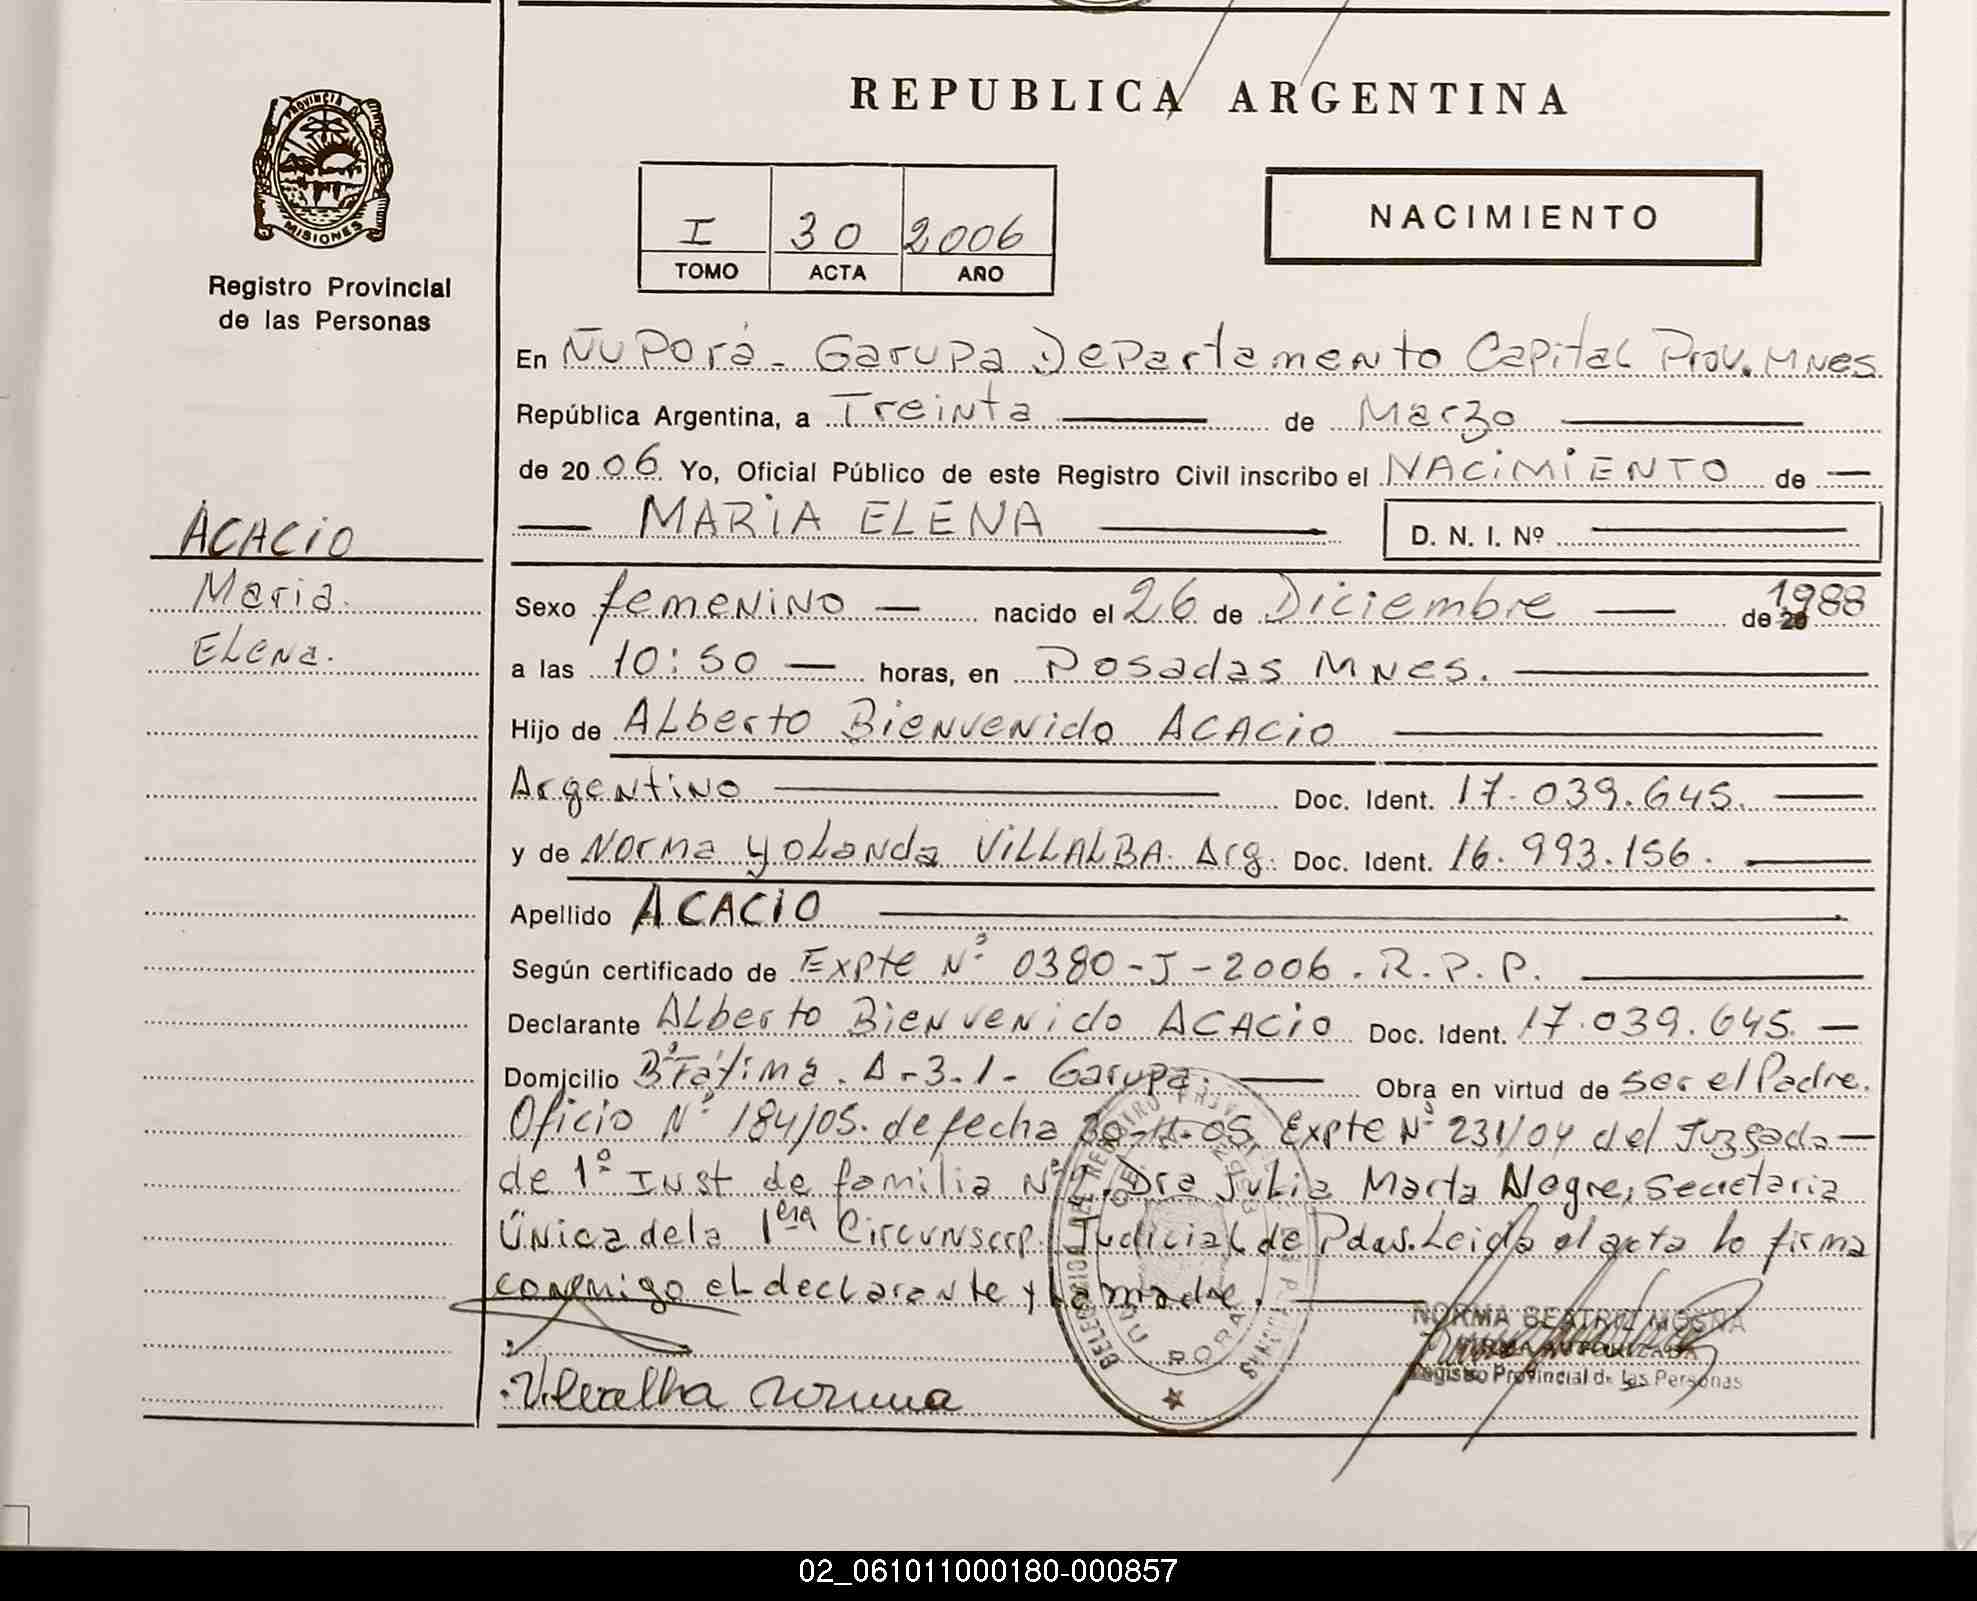 REPUBLICA ARGENTINA
PROVINCIA DE
MISIONES
Registro Provincial
de las Personas
I 30 2006
TOMO ACTA AÑO
NACIMIENTO
En Ñu Porá - Garupa Departamento Capital Prov. Mnes.
República Argentina, a Treinta de Marzo
de 2006 Yo, Oficial Público de este Registro Civil inscribo el NACIMIENTO de
MARIA ELENA D. N. I. Nº
ACACIO
Maria
Elena.
Sexo femenino nacido el 26 de Diciembre de 20 1988
a las 10:50 horas, en Posadas Mnes.
Hijo de Alberto Bienvenido ACACIO
Argentino Doc. Ident. 17.039.645.
y de Norma Yolanda VILLALBA. Arg. Doc. Ident. 16.993.156.
Apellido ACACIO
Según certificado de Expte Nº 0380-J-2006. R.P.P.
Declarante Alberto Bienvenido ACACIO Doc. Ident. 17.039.645.
Domicilio Bº Fátima. A-3.1- Garupa. Obra en virtud de ser el Padre.
Oficio Nº 184/05. de fecha 30-11-05 Expte Nº 231/04 del Juzgado
de 1º Inst de familia Nº Dra Julia Marta Alegre, secretaria
Única de la 1era Circunscrp. Judicial de Pdas. Leida el acta lo firma
conmigo el declarante y la madre.
Villalba Norma
DELEGACION DEL REGISTRO PROVINCIAL DE LAS PERSONAS
ÑU PORA
NORMA BEATRIZ MOSNA
FIRMA AUTORIZADA
Registro Provincial de las Personas
02_061011000180-000857